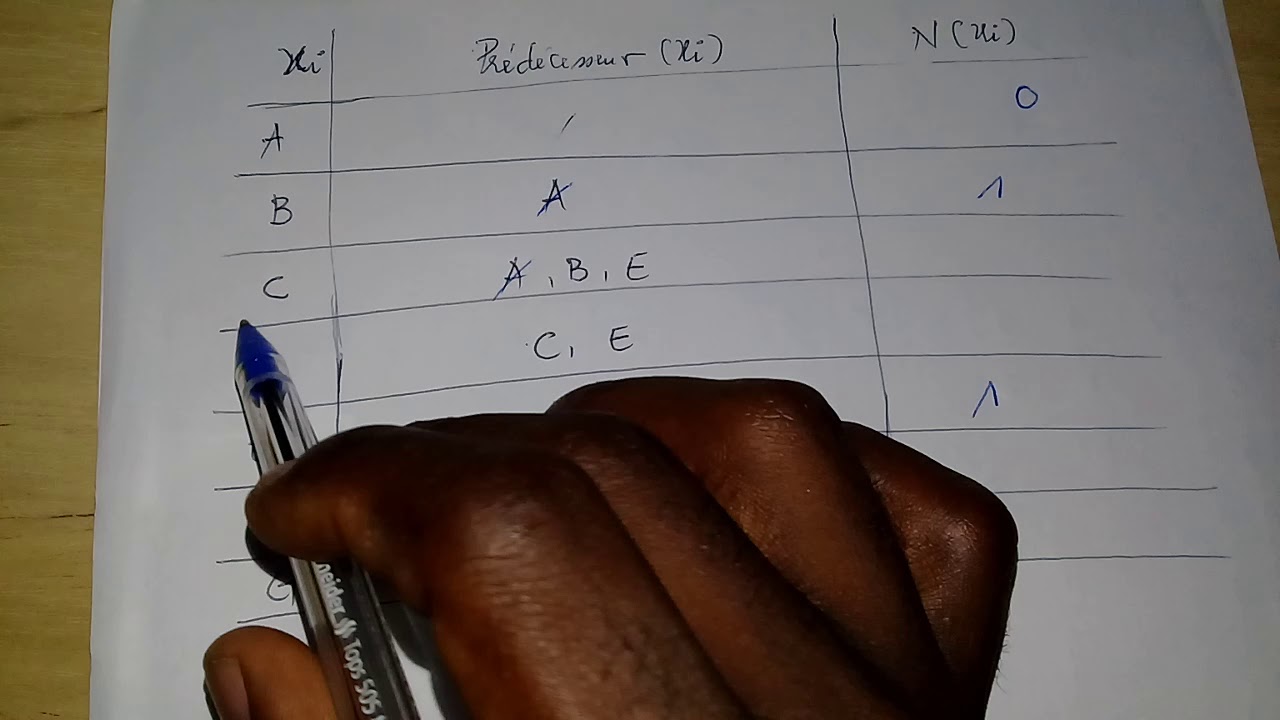 xi Prédécesseur (xi) N(xi)
A / 0
B A 1
C A, B, E
C, E
1
G
neider Tops 505